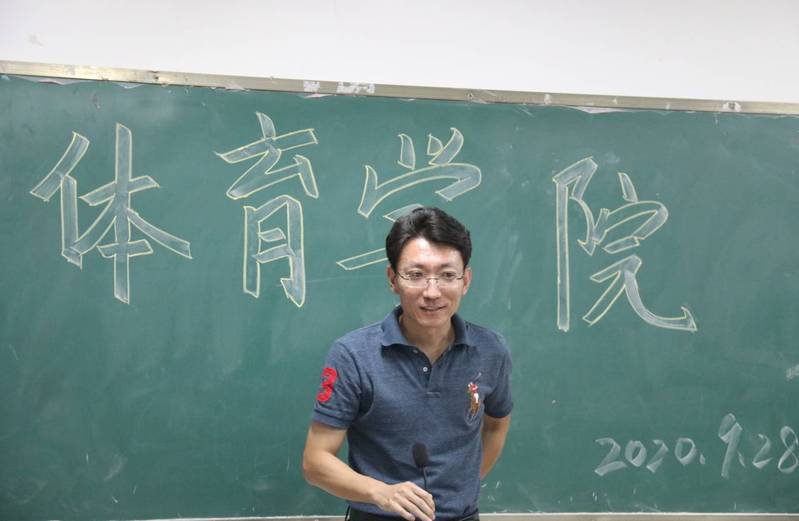 体育学院
3
2020.9.28